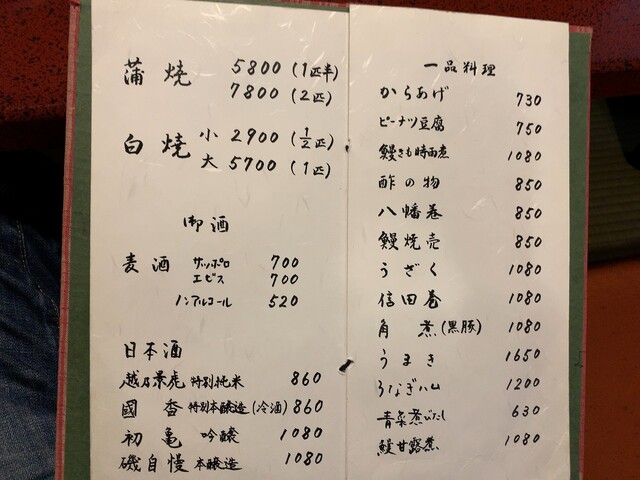 蒲焼 5800 (1匹半)
7800 (2匹)
白焼 小 2900 (1/2匹)
大 5700 (1匹)
御酒
麦酒 サッポロ 700
エビス 700
ノンアルコール 520
日本酒
越乃景虎 特別純米 860
國香 特別本醸造(冷酒) 860
初亀 吟醸 1080
磯自慢 本醸造 1080
一品料理
からあげ 730
ピーナツ豆腐 750
鰻きも時雨煮 1080
酢の物 850
八幡巻 850
鰻焼売 850
うざく 1080
信田巻 1080
角煮(黒豚) 1080
うまき 1650
うなぎハム 1200
青菜煮びたし 630
鰻甘露煮 1080